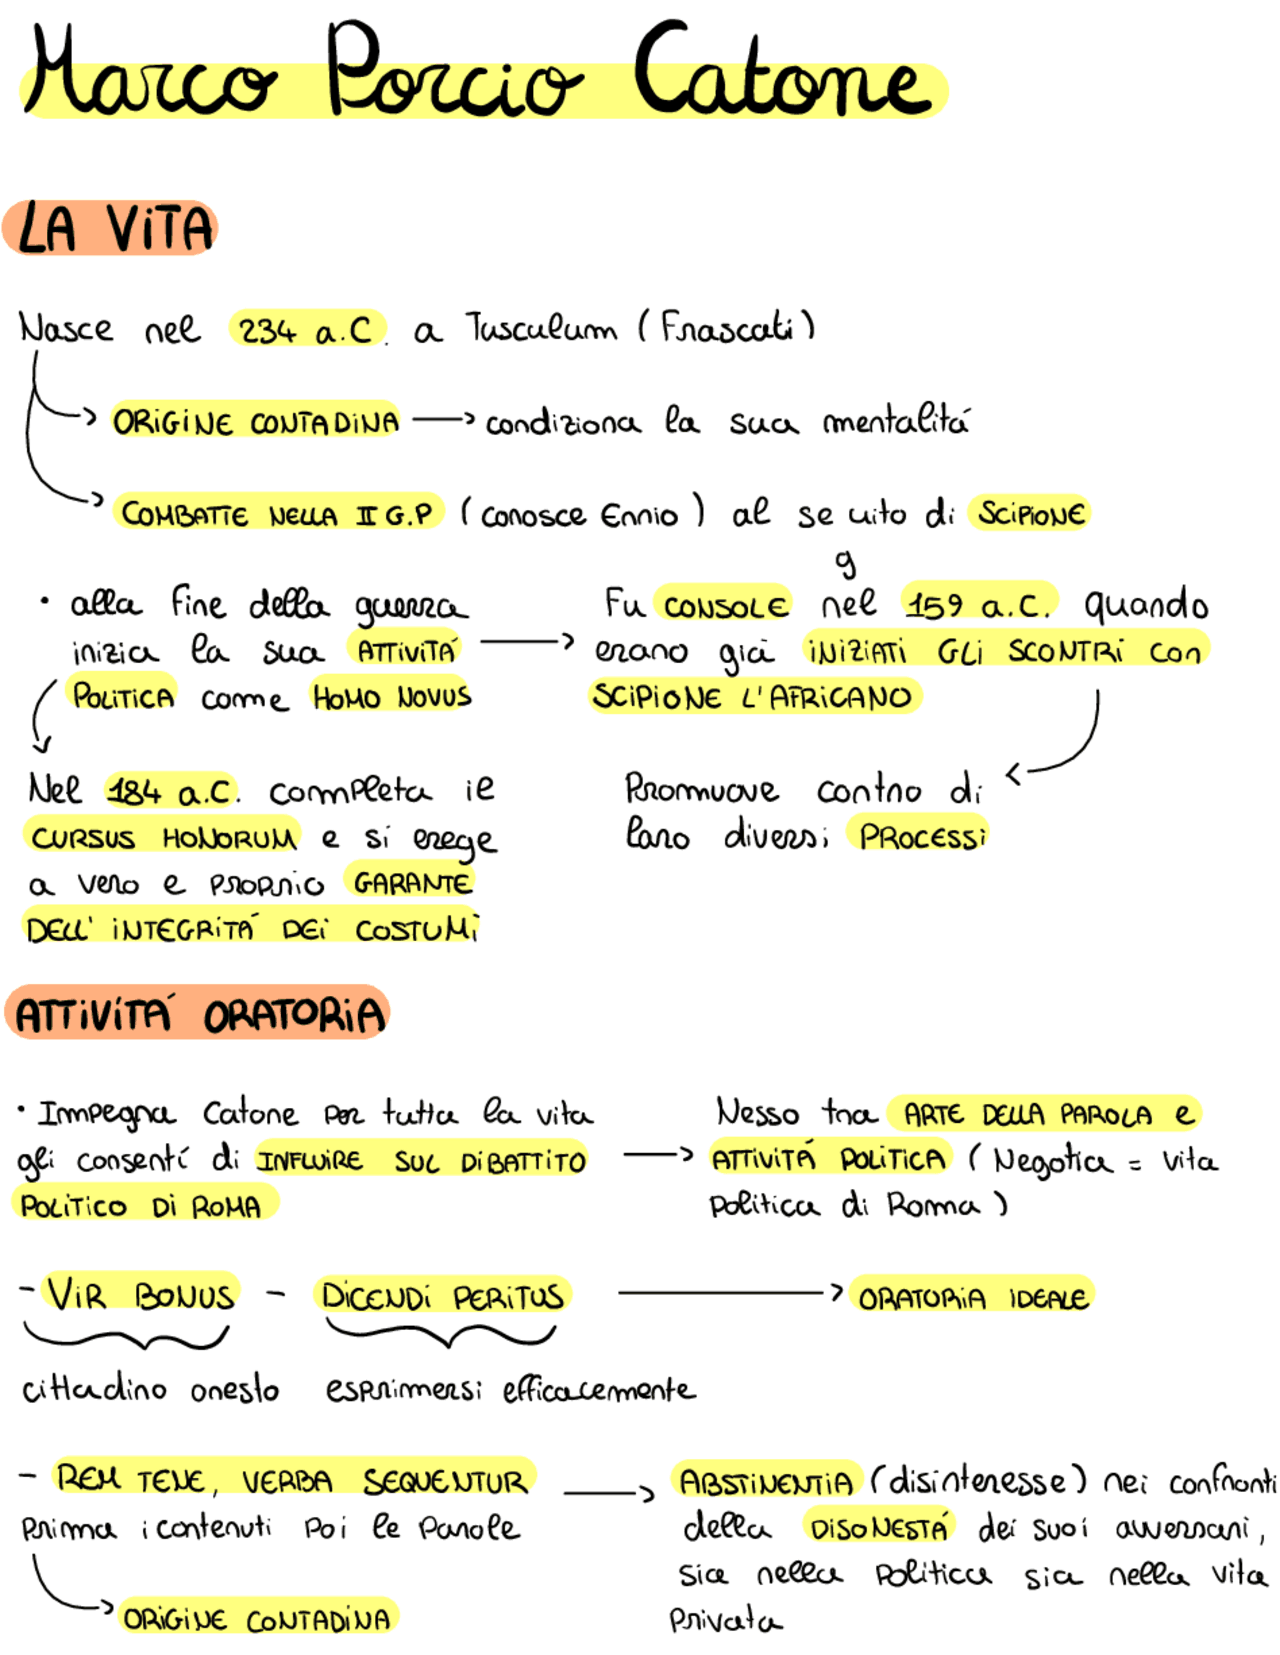 Marco Porcio Catone
LA ViTA
Nasce nel 234 a.C. a Tusculum (Frascati)
ORiGiNE CONTADiNA → condiziona la sua mentalitá
COMBATTE NELLA II G.P (conosce Ennio) al se uito di SCiPiONE
g
• alla fine della guerra
inizia la sua ATTiViTÁ →
POLiTiCA come HOMO NOVUS
Fu CONSOLE nel 159 a.C. quando
erano giá iNiZiATi GLi SCONTRi con
SCiPiONE L'AFRiCANO
Nel 184 a.C. completa il
CURSUS HONORUM e si erege
a vero e proprio GARANTE
DELL' iNTEGRiTÁ DEi COSTUMi
Promuove contro di
loro diversi PROCESSi
ATTiViTÁ ORATORiA
• Impegna Catone per tutta la vita
gli consentí di INFLUIRE SUL DiBATTiTO →
POLiTiCO Di ROMA
Nesso tra ARTE DELLA PAROLA e
ATTiViTÁ POLiTiCA (Negotia = vita
politica di Roma)
- ViR BONUS - DiCENDi PERiTUS → ORATORiA iDEALE
cittadino onesto esprimersi efficacemente
- REM TENE, VERBA SEQUENTUR →
prima i contenuti poi le parole
ORiGiNE CONTADiNA
ABSTiNENTiA (disinteresse) nei confronti
della DiSONESTÁ dei suoi avversari,
sia nella politica sia nella vita
privata